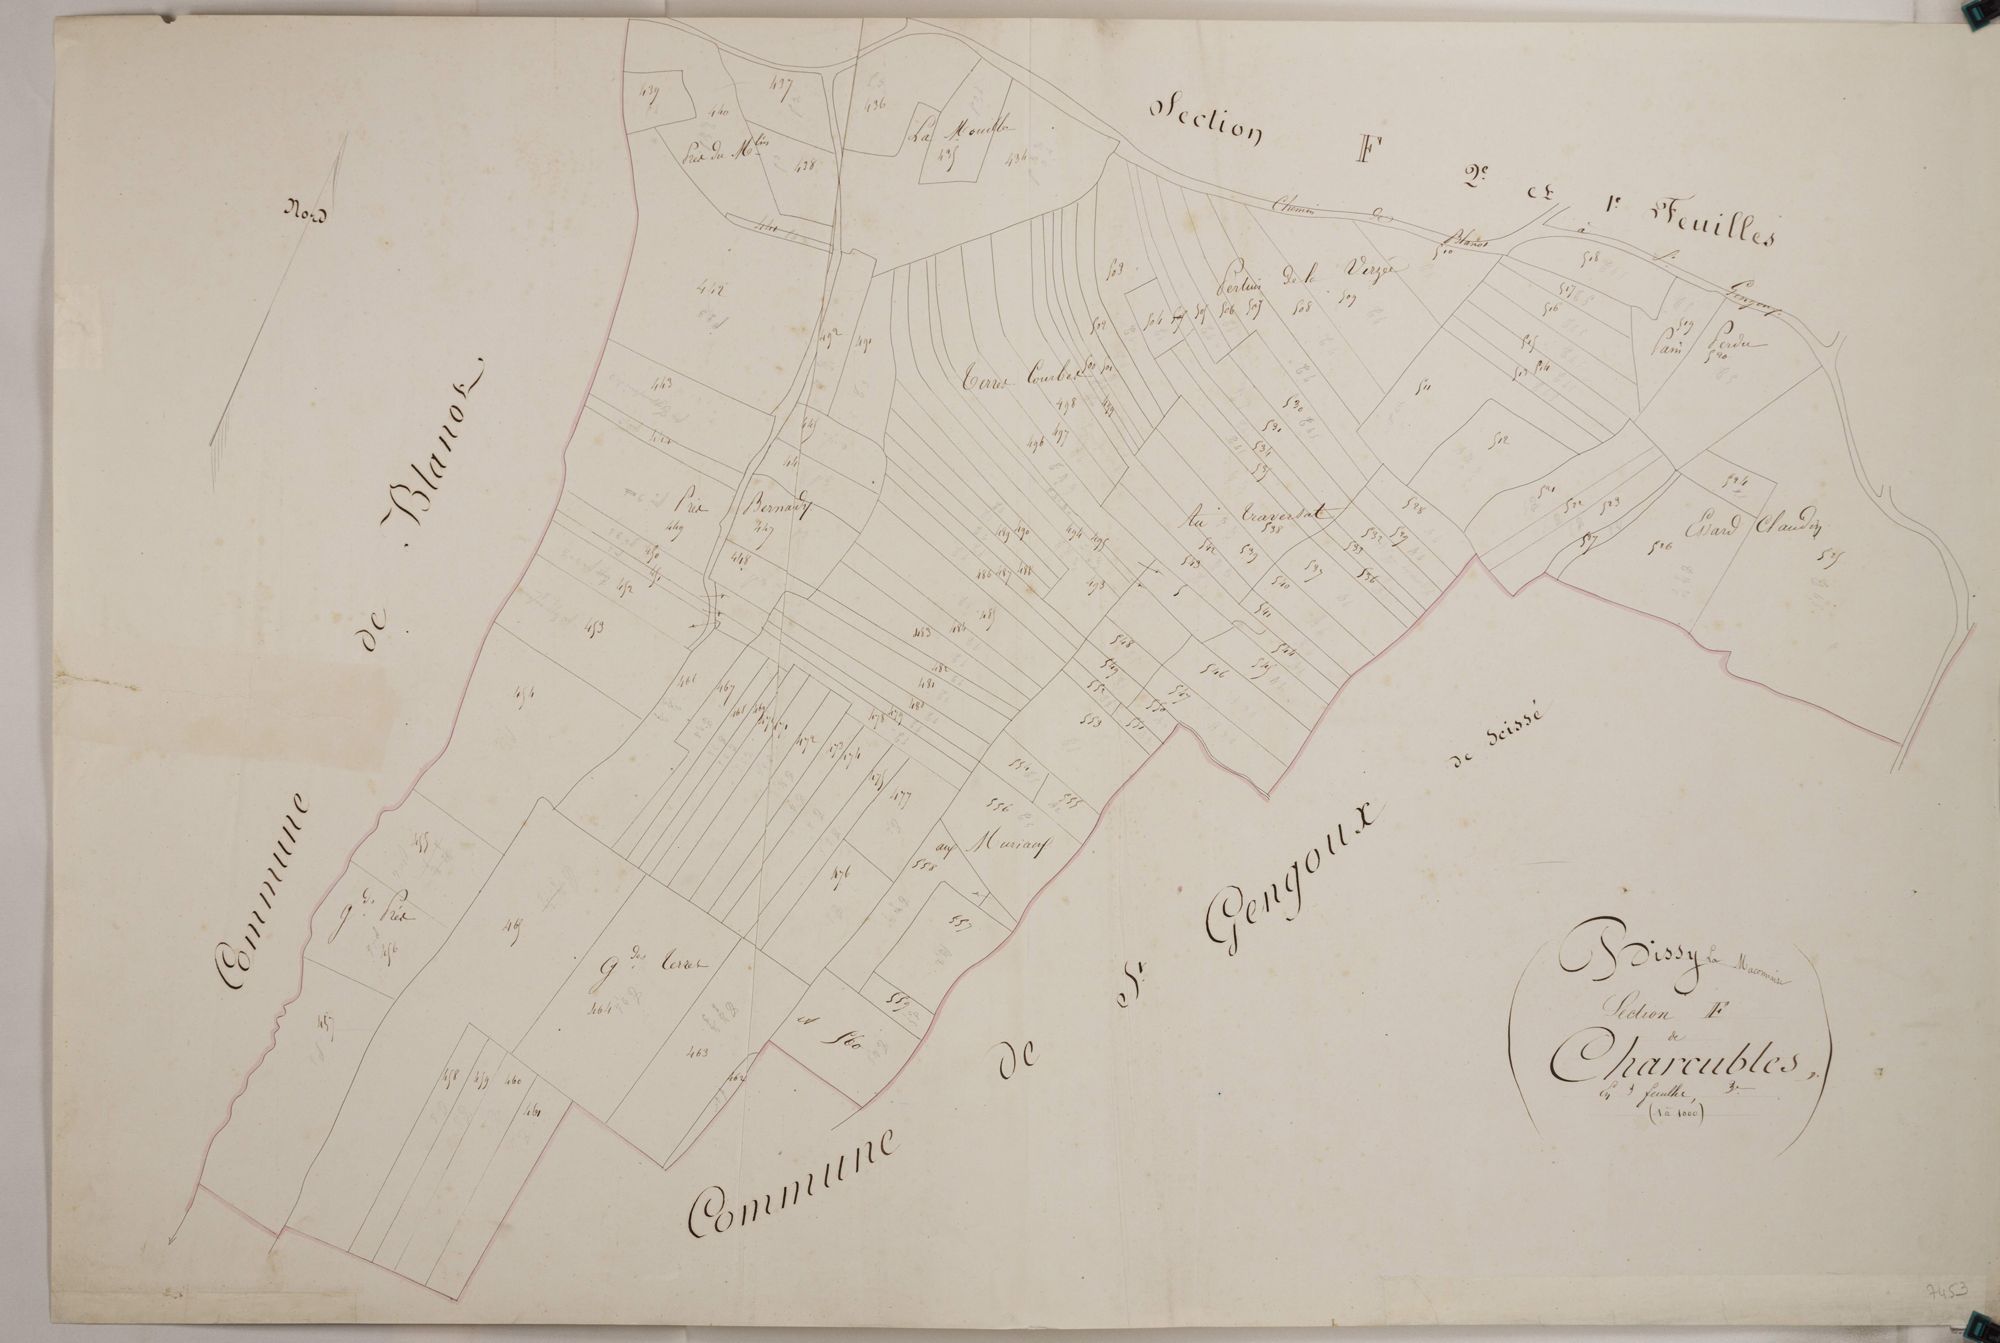 Section F 2e et 1e Feuilles
Nord
Commune de Blanot
Commune de St Gengoux de Scissé
Chemin de Blanot à St Gengoux
439
440
437
436
438
Prés du Mlin
La Mouille
435
434
441
442
443
444
445
447
448
449
450
451
452
453
454
455
456
457
458
459
460
461
462
463
464
465
466
467
472
476
477
478
479
482
483
484
485
486 487 488
489 490
491
492
493
494 495
496 497
498 499
Terres Courbes
503
504
506
507
508
509
510
Pertuis de la Verzée
511
512
513 514
515
516
517
518
519
520
Pain Perdu
521
522
523
524
525
526
527
Essard Claudin
528
529
530
531
532
533
534
535
536
537
538
539
540
541
542
543
544
545
546
547
548
549
Au Traversat
552
553
554
555
556
557
558
559
et 560
Prés Bernady
gds Prés
gdes Terres
aux Muriaux
Bissy la Maconnaise
Section F
de
Charcubles,
en 3 feuilles, 3e
(1 à 1000)
7453